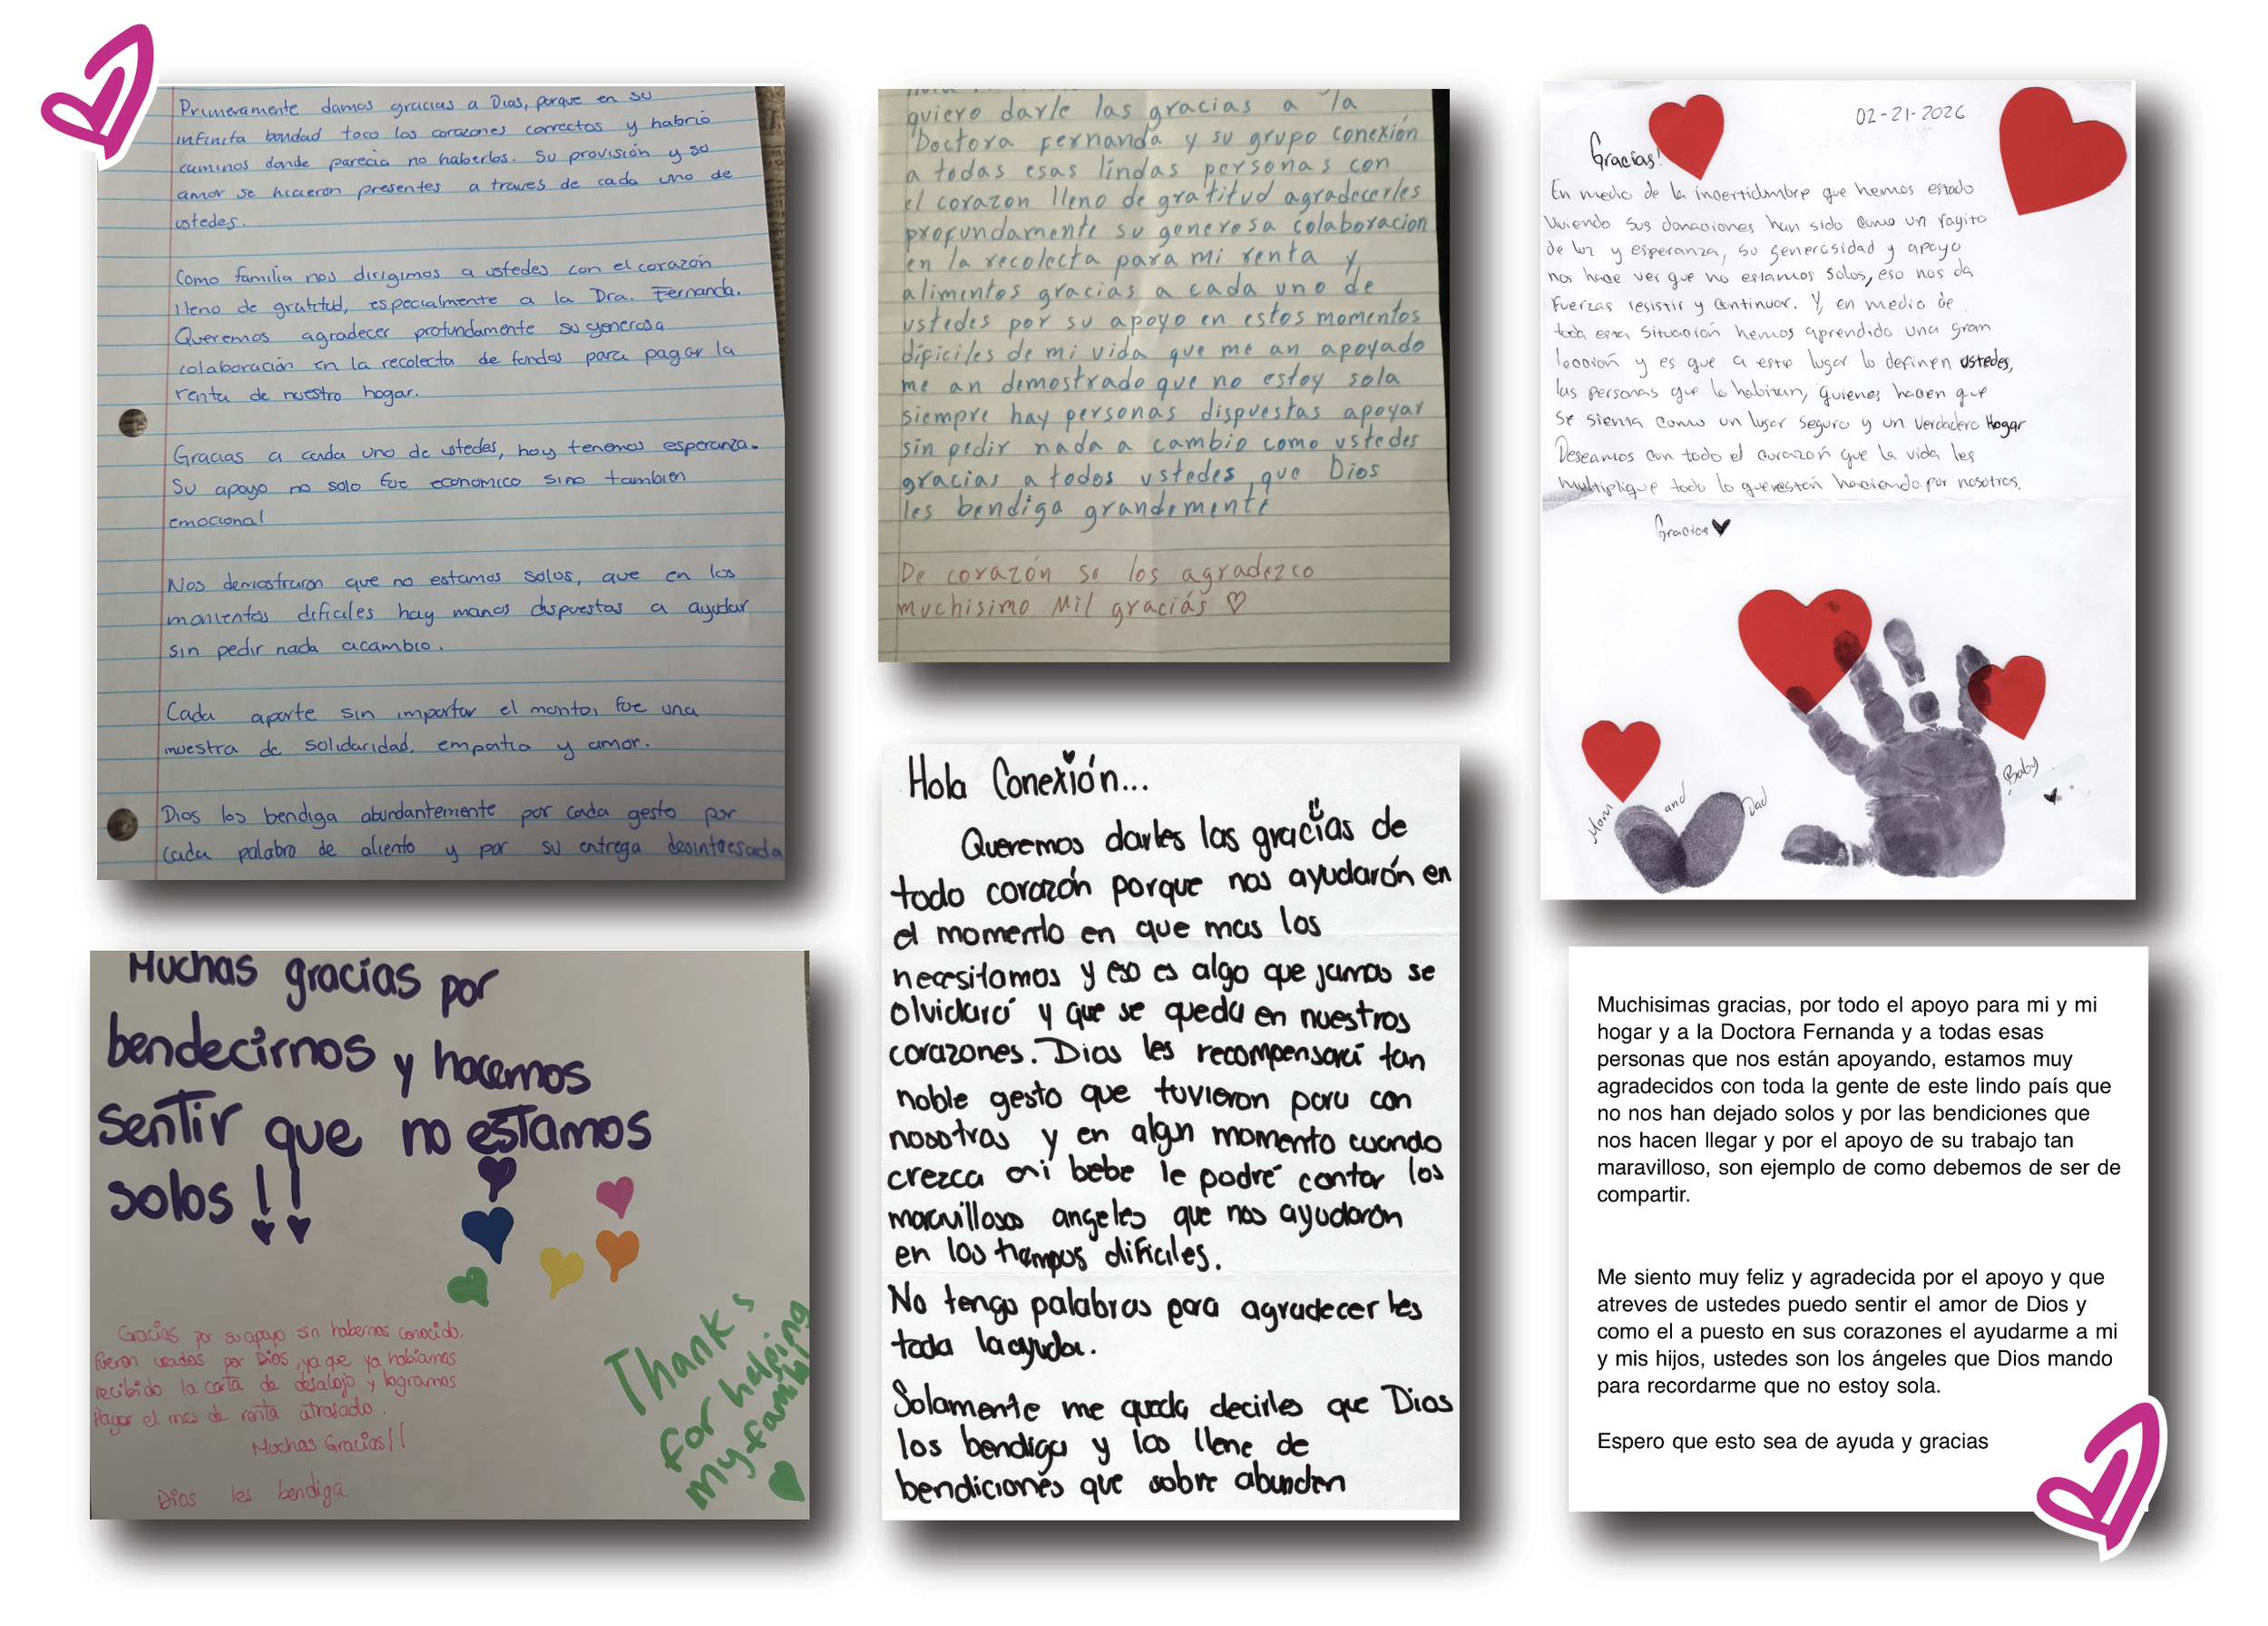 Primeramente damos gracias a Dios, porque en su
infinita bondad toco los corazones correctos y habrio
caminos donde parecia no haberlos. Su provisión y su
amor se hicieron presentes a traves de cada uno de
ustedes.
Como familia nos dirigimos a ustedes con el corazón
lleno de gratitud, especialmente a la Dra. Fernanda.
Queremos agradecer profundamente su generosa
colaboración en la recolecta de fondos para pagar la
renta de nuestro hogar.
Gracias a cada uno de ustedes, hoy tenemos esperanza.
Su apoyo no solo fue economico sino tambien
emocional
Nos demostraron que no estamos solos, que en los
momentos dificiles hay manos dispuestas a ayudar
sin pedir nada acambio.
Cada aporte sin importar el monto, fue una
muestra de solidaridad, empatia y amor.
Dios los bendiga abundantemente por cada gesto por
cada palabra de aliento y por su entrega desinteresada
quiero darle las gracias a la
Doctora Fernanda y su grupo conexión
a todas esas lindas personas con
el corazon lleno de gratitud agradecerles
profundamente su generosa colaboracion
en la recolecta para mi renta y
alimentos gracias a cada uno de
ustedes por su apoyo en estos momentos
dificiles de mi vida que me an apoyado
me an demostrado que no estoy sola
siempre hay personas dispuestas apoyar
sin pedir nada a cambio como ustedes
gracias a todos ustedes que Dios
les bendiga grandemente
De corazón se los agradezco
muchisimo Mil graciás ♡
02-21-2026
Gracias!
En medio de la incertidumbre que hemos estado
viviendo sus donaciones han sido como un rayito
de luz y esperanza, su generosidad y apoyo
nos hace ver que no estamos solos, eso nos da
fuerzas resistir y continuar. Y, en medio de
toda esta situación hemos aprendido una gran
lección y es que a este lugar lo definen ustedes,
las personas que lo habitan, quienes hacen que
se sienta como un lugar seguro y un verdadero Hogar
Deseamos con todo el corazón que la vida les
multiplique todo lo que están haciendo por nosotros.
Gracias ♥
Mom and Dad
Baby
Muchas gracias por
bendecirnos y hacernos
sentir que no estamos
solos!!
Gracias por su apoyo sin habernos conocido.
Fueron usados por Dios, ya que ya habíamos
recibido la carta de desalojo y logramos
Pagar el mes de renta atrasado.
Muchas Gracias!!
Dios les bendiga
Thank s
for helping
my family
Hola Conexión...
Queremos darles las gracias de
todo corazón porque nos ayudarón en
el momento en que mas los
necesitamos y eso es algo que jamas se
olvidará y que se queda en nuestros
corazones. Dios les recompensará tan
noble gesto que tuvieron para con
nosotros y en algun momento cuando
crezca mi bebe le podré contar los
maravillosos angeles que nos ayudarón
en los tiempos dificiles.
No tengo palabras para agradecer les
toda la ayuda.
Solamente me queda decirles que Dios
los bendiga y los llene de
bendiciones que sobre abunden
Muchisimas gracias, por todo el apoyo para mi y mi
hogar y a la Doctora Fernanda y a todas esas
personas que nos están apoyando, estamos muy
agradecidos con toda la gente de este lindo país que
no nos han dejado solos y por las bendiciones que
nos hacen llegar y por el apoyo de su trabajo tan
maravilloso, son ejemplo de como debemos de ser de
compartir.
Me siento muy feliz y agradecida por el apoyo y que
atreves de ustedes puedo sentir el amor de Dios y
como el a puesto en sus corazones el ayudarme a mi
y mis hijos, ustedes son los ángeles que Dios mando
para recordarme que no estoy sola.
Espero que esto sea de ayuda y gracias